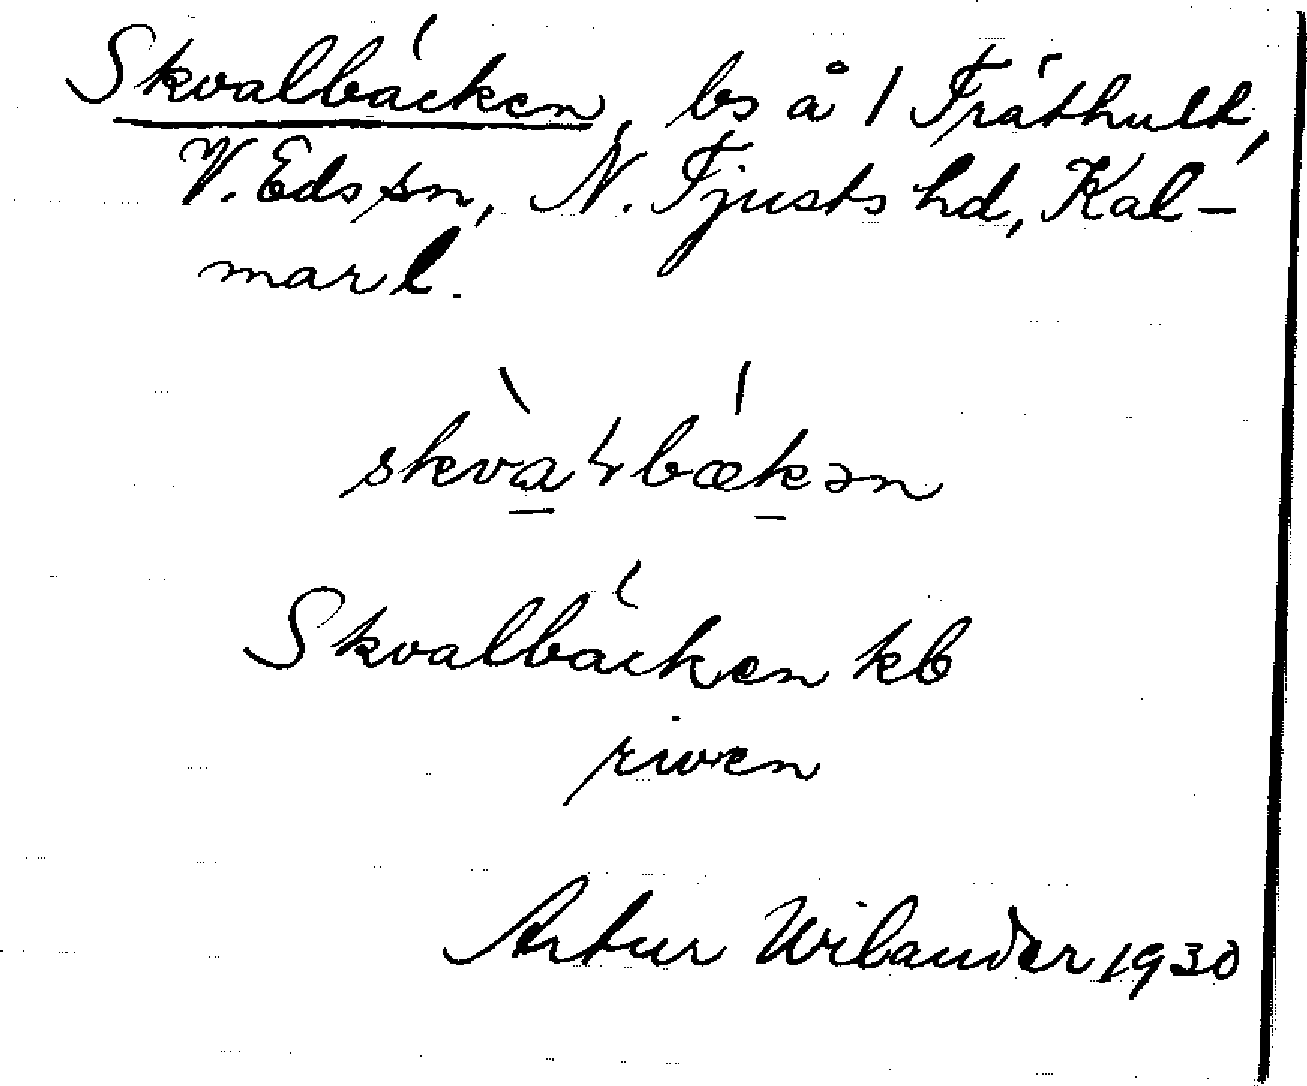 Skvalbäcken, ls å 1 Fräthult,
V. Eds sn, N. Tjusts hd, Kal-
mar l.
skvàɬbǽkən
Skvalbäcken kb
riven
Artur Wilander 1930